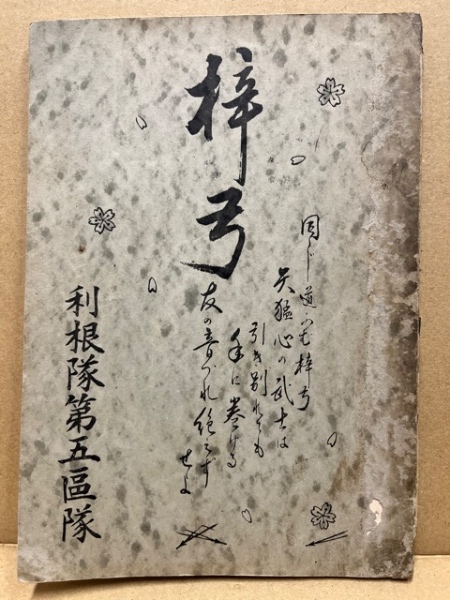 梓弓
同じ道ふむ梓弓
矢猛心の武士よ
引き別れても
手に巻ける
友の音づれ絶えず
せよ
利根隊第五區隊